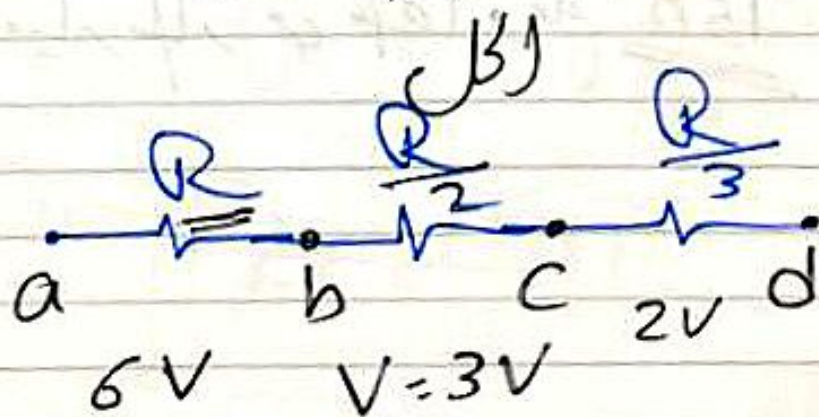 R R/2 R/3
a b c d
6V V=3V 2V